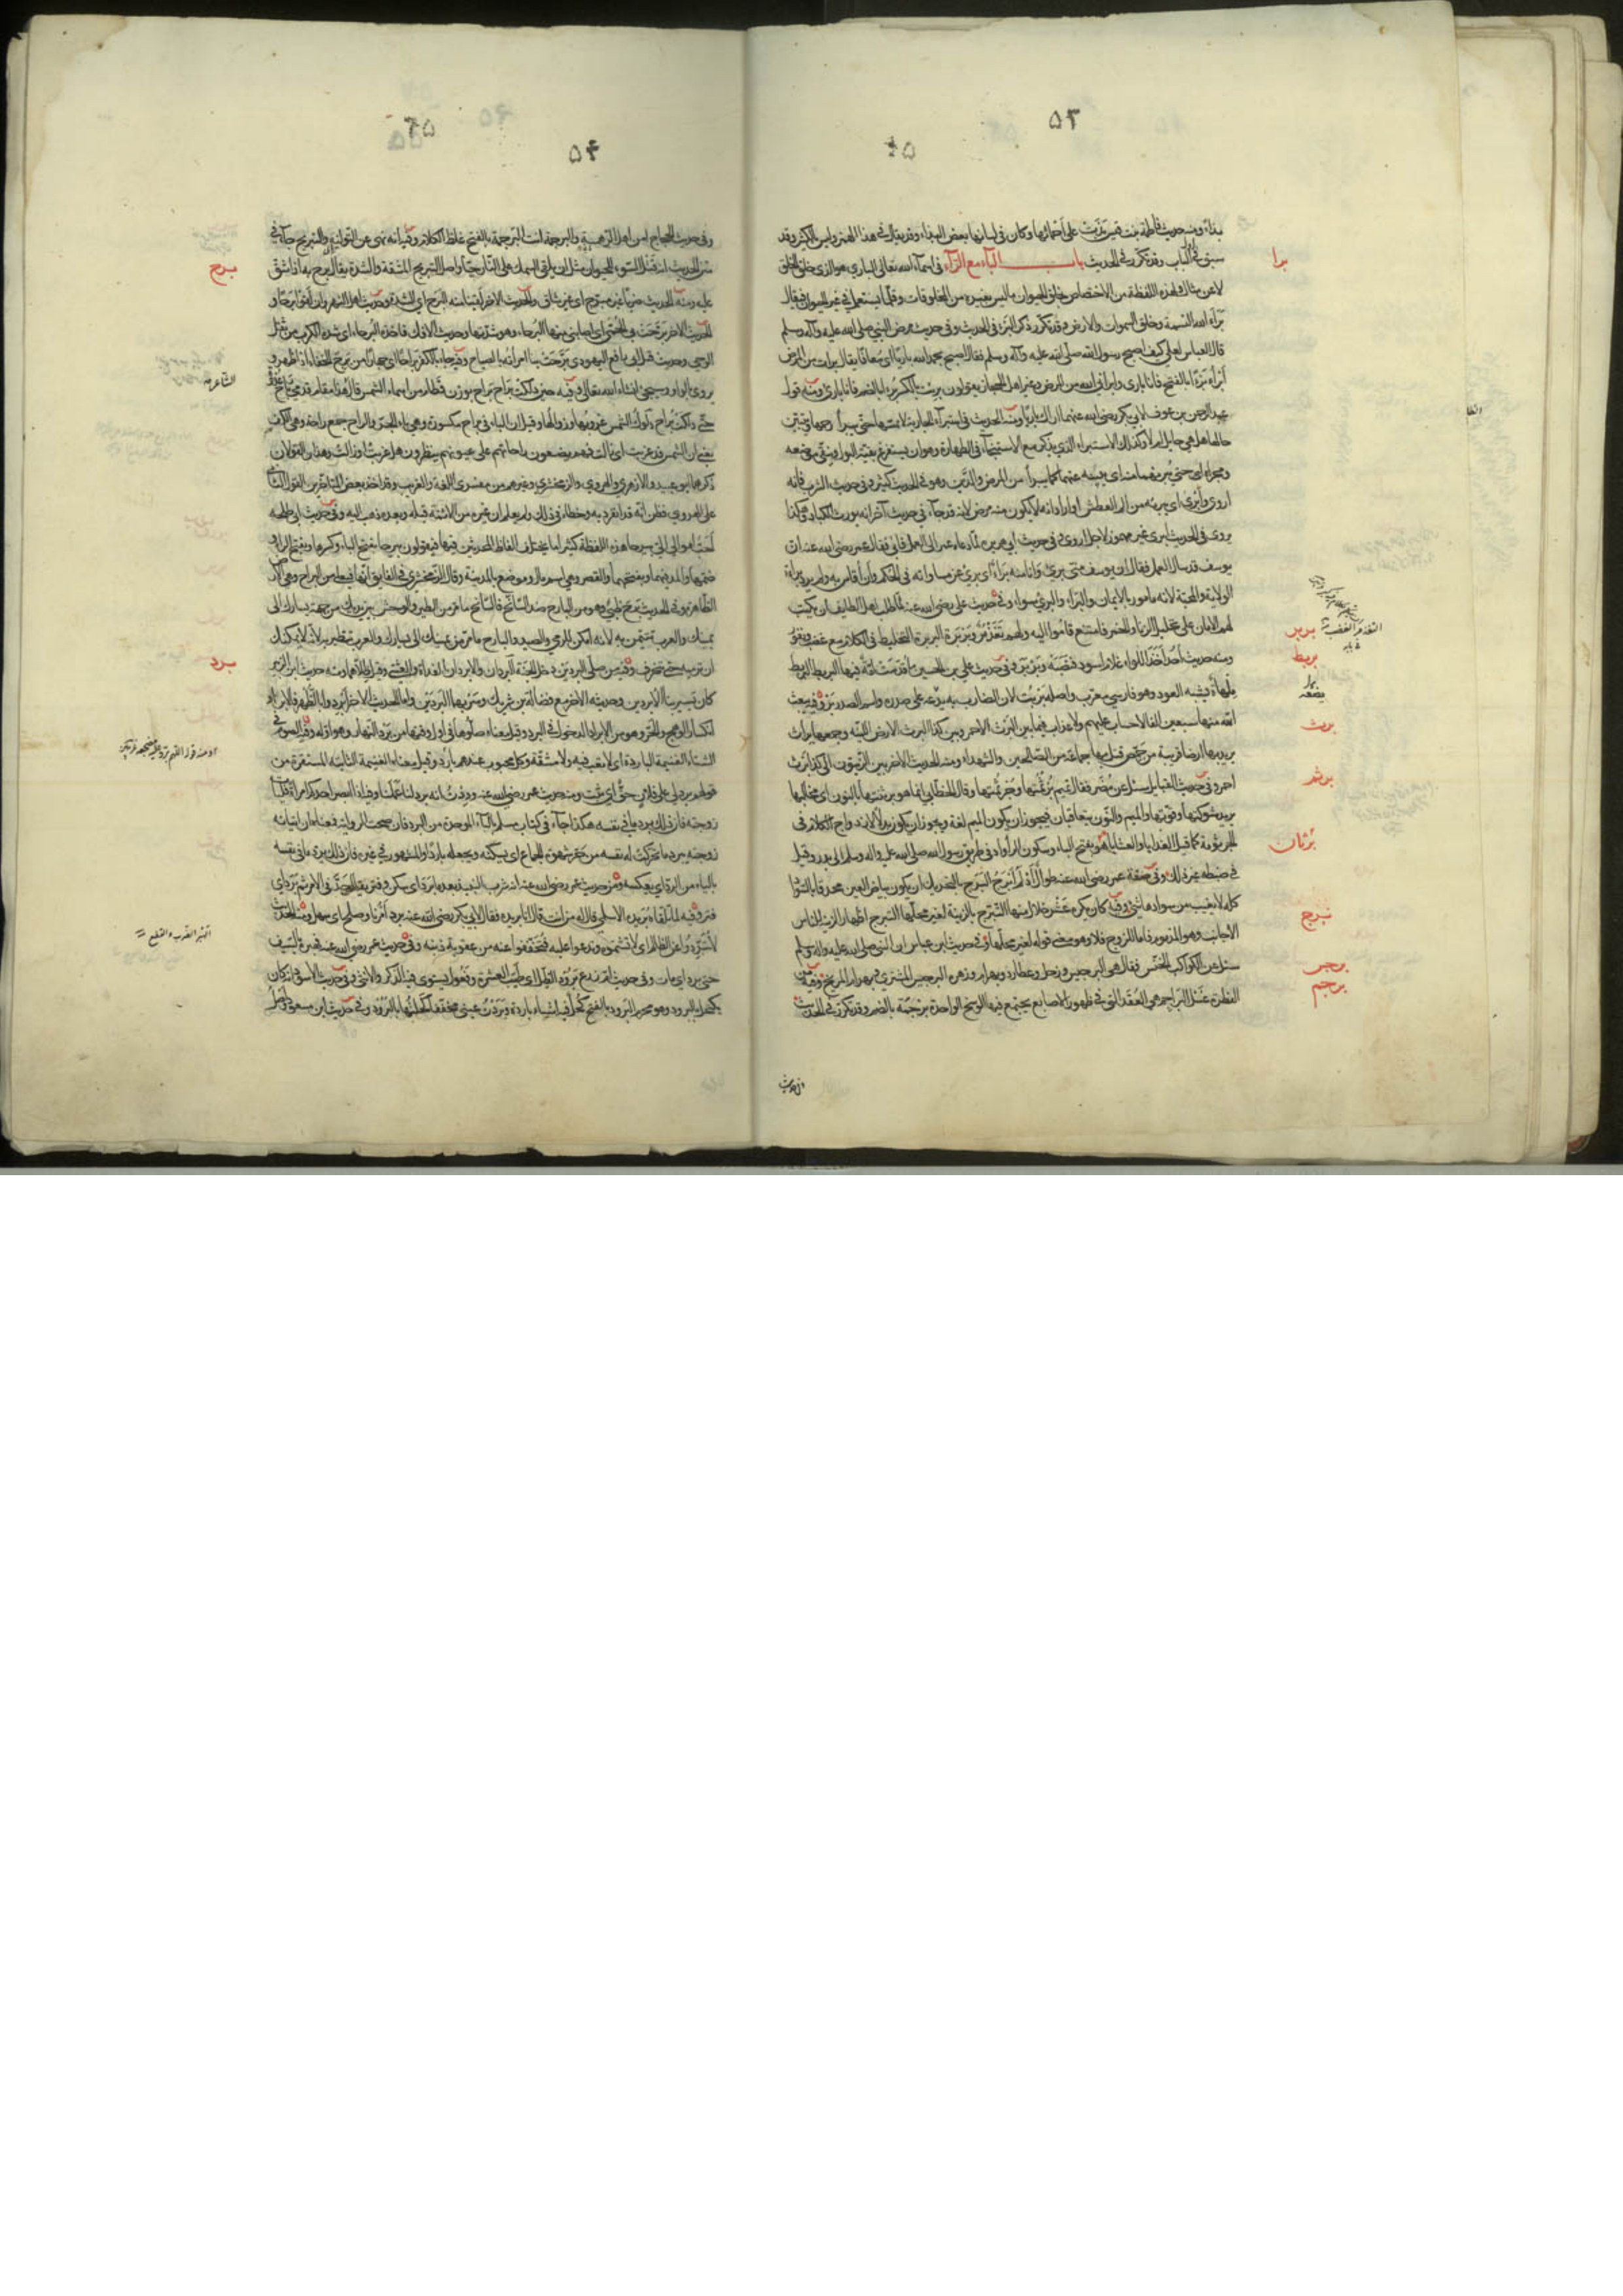 ۵۳
بذاء ومنه حديث فاطمة بنت قيس بَذَتْ على أحمائها وكان في لسانها بعض البذاء وقد يقال في هذا الهمز وليس بالكثير وقد
سبق في الباب وقد تكرر في الحديث باب الباء مع الراء في اسماء الله تعالى الباري هو الذي خلق الخلق
برا
لا عن مثال ولهذه اللفظة من الاختصاص بخلق الحيوان ما ليس لها بغيره من المخلوقات وقلّما يستعمل في غير الحيوان فيقال
برأ الله النسمة وخلق السموات والارض وقد تكرر ذكر البرء في الحديث وفي حديث مرض النبي صلى الله عليه وآله وسلم
قال العباس لعلي كيف اصبح رسول الله صلى الله عليه وآله وسلم فقال اصبح بحمد الله بارئا اي معافا يقال برأت من المرض
أبرأ برءا بالفتح فانا بارئ وابرأني الله من المرض وغير اهل الحجاز يقولون برئت بالكسر برءا بالضم فانا بارئ ومنه قول
عبد الرحمن بن عوف لابي بكر رضي الله عنهما اراك بارئا ومنه الحديث في استبراء الجارية لا يمسها حتى يبرأ رحمها ويتبين
حالها هل هي حامل ام لا وكذلك الاستبراء الذي يذكر مع الاستنجاء في الطهارة وهو ان يستفرغ بقية البول وينقي موضعه
ومجراه حتى يبرئهما منه اي يبينه عنهما كما يبرأ من المرض والدين وهو في الحديث كثير وفي حديث الشرب فانه
اروى وأبرى اي يبريه من الم العطش او اراد انه لا يكون منه مرض لانه قد جاء في حديث آخر انه يورث الكباد وهكذا
يروى في الحديث ابرى غير مهموز لاجل اروى وفي حديث ابي هريرة لما دعاه عمر الى العمل فابى فقال عمر رضي الله عنه ان
يوسف قد سأل العمل فقال ان يوسف مني بريء وانا منه براء اي بريء عن مساواته في الحكم وأن أقاس به ولم يرد براءة
الولاية والمحبة لانه مأمور بالايمان به والبراء والبريء سواء وفي حديث علي رضي الله عنه لما طلب اليه اهل الطائف ان يكتب
لهم الامان على تحليل الزنا والخمر فامتنع قاموا اليه ولهم تغذمر وبربرة البربرة التخليط في الكلام مع غضب ونفور
بربر
ومنه حديث احد اخذ اللواء غلام اسود فنصبه وبربر وفي حديث علي بن الحسين لا قدست امة فيها البربط البربط
بربط
ملهاة تشبه العود وهو فارسي معرب واصله بربت لان الضارب به يضعه على صدره واسم الصدر بر وفيه يبعث
الله منها سبعين الفا لا حساب عليهم ولا عذاب فيما بين البرث الاحمر وبين كذا البرث الارض اللينة وجمعها براث
برث
يريد بها ارضا قريبة من حمص قتل بها جماعة من الصالحين والشهداء ومنه الحديث الاخر بين الزيتون الى كذا برث
احمر وفي حديث القبايل سئل عن مضر فقال تميم برثمتها وجرثمتها وقال الخطابي انما هو برثنتها بالنون اي مخالبها
برثم
يريد شوكتها وقوتها والميم والنون يتعاقبان فيجوز ان يكون الميم لغة ويجوز ان يكون بدلا لازدواج الكلام في
الجرثومة كما قيل الغدايا والعشايا هو بفتح الباء وسكون الراء واد في طريق رسول الله صلى الله عليه واله وسلم الى بدر وقيل
برثان
في ضبطه غير ذلك وفي صفة عمر رضي الله عنه طوال أدلم أبرج البرج بالتحريك ان يكون بياض العين محدقا بالسواد
كله لا يغيب من سوادها شيء وفيه كان يكره عشر خلال منها التبرج بالزينة لغير محلها التبرج اظهار الزينة للناس
برج
الاجانب وهو المذموم فاما للزوج فلا وهو معنى قوله لغير محلها وفي حديث ابن عباس ان النبي صلى الله عليه واله وسلم
سئل عن الكواكب الخنس فقال هي البرجيس وزحل وعطارد وبهرام وزهره البرجيس المشتري وبهرام المريخ وفيه من
برجس
الفطرة غسل البراجم هي العقد التي في ظهور الاصابع يجتمع فيها الوسخ الواحدة برجمة بالضم وقد تكرر في الحديث
برجم
وفي حديث
۵۴
وفي حديث الحجاج امن اهل الرهمسة والبرجمة انت البرجمة بالفتح غلظ الكلام وفيه انه نهى عن التوليه والتبريح جاء في
متن الحديث انه قتل السوء للحيوان مثل ان يلقى السمك على النار حيا واصل التبريح المشقة والشدة يقال برح به اذا شق
برح
عليه ومنه الحديث ضربا غير مبرح اي غير شاق والحديث الاخر لقينا منه البرح اي الشدة وحديث اهل النهروان لقوا برحا و
الحديث الاخر برحت بي الحمى اي اصابني منها البرحاء وهو شدتها وحديث الافك فاخذه البرحاء اي شدة الكرب من ثقل
الوحي وحديث قتل ابي رافع اليهودي برحت بنا امرأته بالصياح وفيه جاء بالكفر براحا اي جهارا من برح الخفاء اذا ظهر و
يروى بالواو وسيجيء انشاء الله تعالى وفيه حين دلكت براح براح بوزن قطام من اسماء الشمس قال هذا مقام قدمي رباح غدوة
الشاعر
حتى دلكت براح دلوك الشمس غروبها وزوالها وقيل ان الباء في براح مكسورة وهي باء الجر والراح جمع راحة وهي الكف
يعني ان الشمس قد غربت او زالت فهم يضعون راحاتهم على عيونهم ينظرون هل غربت او زالت وهذان القولان
ذكرهما ابو عبيد والازهري والهروي والزمخشري وغيرهم من مفسري اللغة والغريب وقد اخذ بعض المتاخرين القول الثاني
على الهروي فظن انه قد انفرد به وخطاه في ذلك ولم يعلم ان غيره من الائمة قبله وبعده ذهب اليه وفي حديث ابي طلحة
أحب اموالي الي بيرحا هذه اللفظة كثيرا ما يختلف الفاظ المحدثين فيها فيقولون بيرحاء بفتح الباء وكسرها وبفتح الراء و
ضمها والمد فيهما وبفتحهما والقصر وهي اسم مال وموضع بالمدينة وقال الزمخشري في الفايق انها فيعلى من البراح وهي الارض
الظاهرة وفي الحديث برح ظبي وهو من البارح ضد السانح فالسانح ما مر من الطير والوحش بين يديك من جهة يسارك الى
يمينك والعرب تتيمن به لانه امكن للرمي والصيد والبارح ما مر من يمينك الى يسارك والعرب تتطير به لانه لا يمكنك
ان ترميه حتى تنحرف وفيه من صلى البردين دخل الجنة البردان والابردان الغداة والعشي وقيل ظلاهما ومنه حديث ابن الزبير
برد
كان يسير بنا الأبردين وحديثه الاخر مع فضالة بن شريك وسر بها البردين واما الحديث الاخر أبردوا بالظهر فالابراد
انكسار الوهج والحر وهو من الابراد الدخول في البرد وقيل معناه صلوها في اول وقتها من برد النهار وهو اوله وفيه الصوم في
الشتاء الغنيمة الباردة اي لا تعب فيه ولا مشقة وكل محبوب عندهم بارد وقيل معناه الغنيمة الثابتة المستقرة من
قولهم برد لي على فلان حق اي ثبت ومنه حديث عمر رضي الله عنه وددت انه برد لنا عملنا وفيه اذا ابصر احدكم امرأة فليأت
زوجته فان ذلك برد ما في نفسه هكذا جاء في كتاب مسلم بالباء الموحدة من البرد فان صحت الرواية فمعناه ان اتيانه
زوجته يبرد ما تحركت له نفسه من حر شهوة الجماع اي يسكنه ويجعله باردا والمشهور في غيره فان ذلك يرد ما في نفسه
بالياء من الرد اي يعكسه وفي حديث عمر رضي الله عنه انه شرب النبيذ بعدما برد اي سكن وفتر يقال جد في الامر ثم برد اي
فتر وفيه لما تلقاه بريدة الاسلمي قال له من انت قال انا بريدة فقال لابي بكر رضي الله عنه برد أمرنا وصلح اي سهل ومنه الحديث
لا تبردوا عن الظالم اي لا تشتموه وتدعوا عليه فتخففوا عنه من عقوبة ذنبه وفي حديث عمر رضي الله عنه فهبره بالسيف
الهبر الضرب والقطع
حتى برد اي مات وفي حديث ام زرع برود الظل اي طيب العشرة وفعول يستوي فيه الذكر والانثى وفي حديث الاسود انه كان
يكتحل بالبرود وهو محرم البرود بالفتح كحل فيه اشياء باردة وبردت عيني مخففا كحلتها بالبرود وفي حديث ابن مسعود اصل